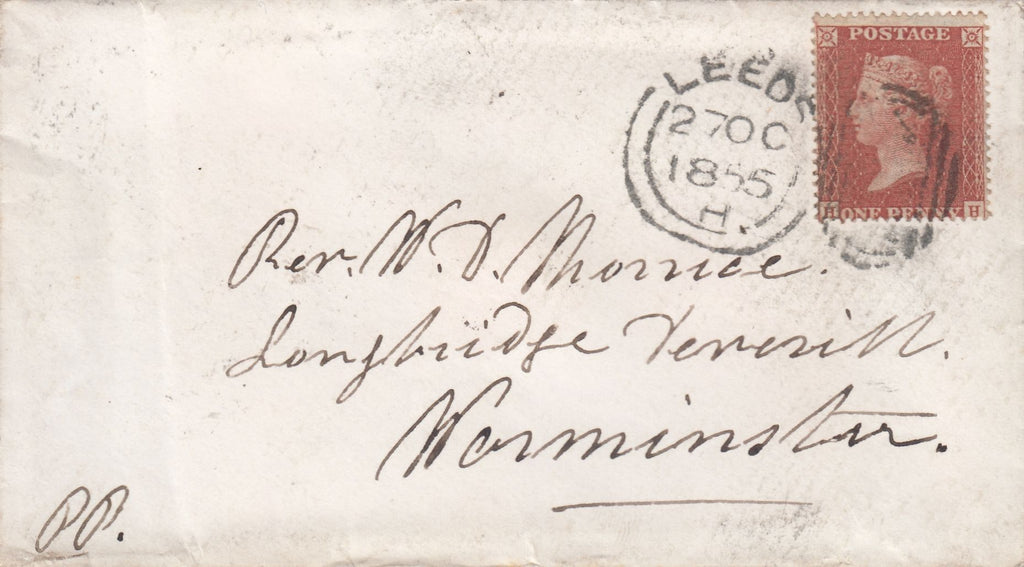 POSTAGE
LEEDS
27 OC
1855
H.
H ONE PENNY H
Rev. W. D. Morrice.
Longbridge Deverill.
Warminster.
PP.